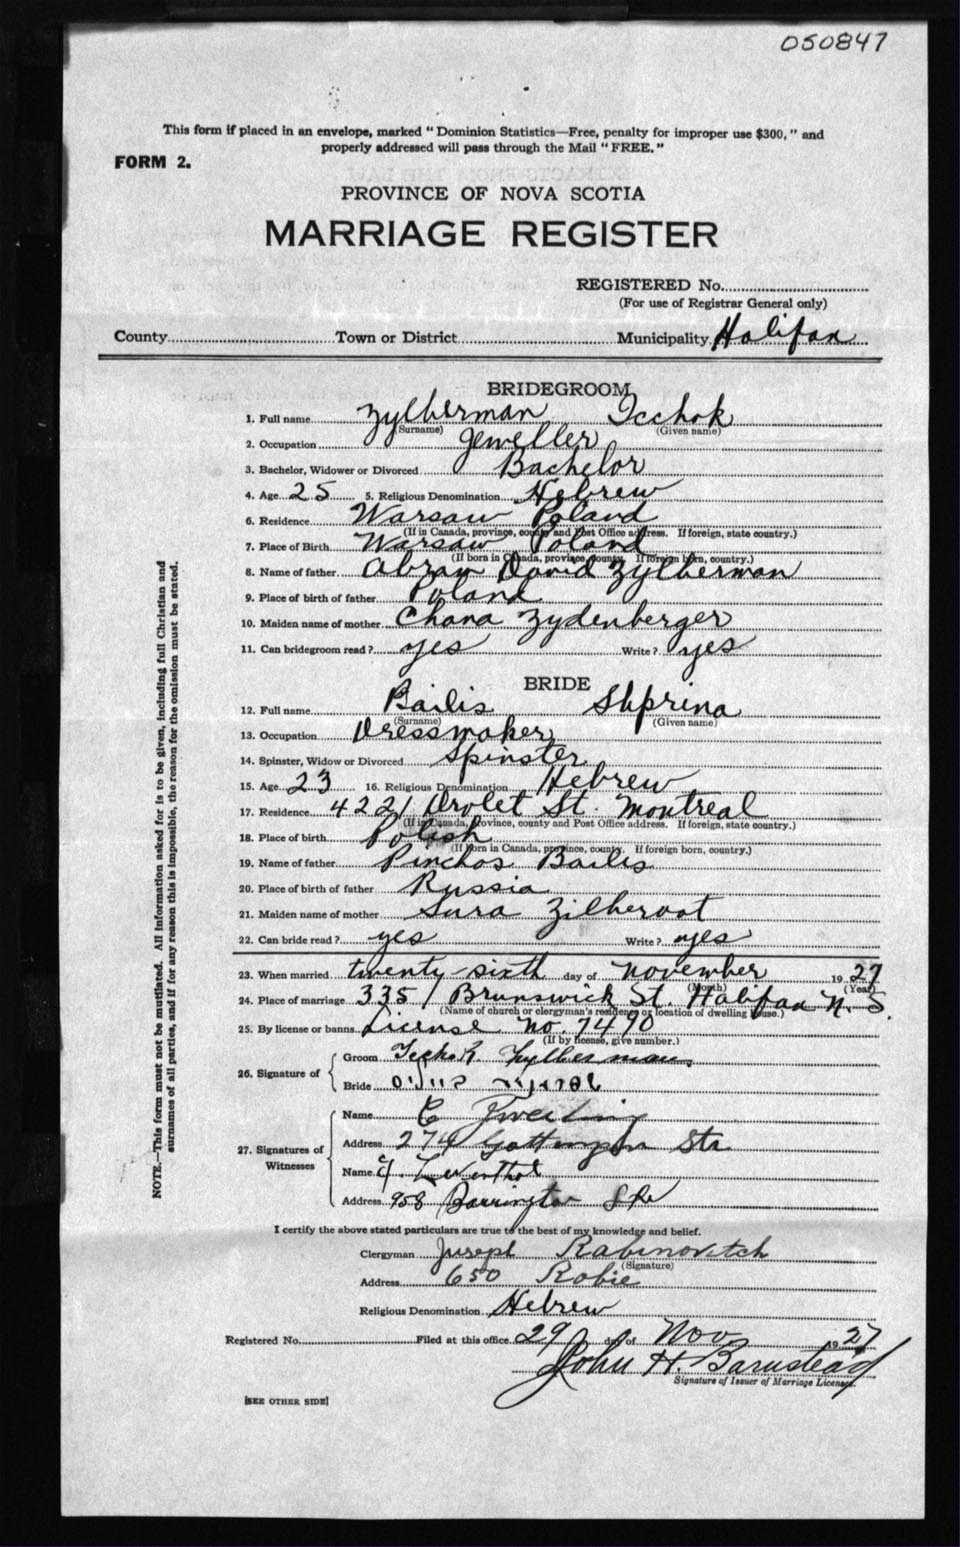 050847
This form if placed in an envelope, marked "Dominion Statistics—Free, penalty for improper use $300," and
properly addressed will pass through the Mail "FREE."
FORM 2.
PROVINCE OF NOVA SCOTIA
MARRIAGE REGISTER
REGISTERED No.
(For use of Registrar General only)
County Town or District Municipality Halifax
BRIDEGROOM
1. Full name Zylberman Icchok
(Surname) (Given name)
2. Occupation Jeweller
3. Bachelor, Widower or Divorced Bachelor
4. Age 25 5. Religious Denomination Hebrew
6. Residence Warsaw Poland
(If in Canada, province, county and Post Office address. If foreign, state country.)
7. Place of Birth Warsaw Poland
(If born in Canada, province, county. If foreign born, country.)
8. Name of father Abram David Zylberman
9. Place of birth of father Poland
10. Maiden name of mother Chana Zydenberger
11. Can bridegroom read? yes Write? yes
BRIDE
12. Full name Bailis Shprina
(Surname) (Given name)
13. Occupation Dressmaker
14. Spinster, Widow or Divorced Spinster
15. Age 23 16. Religious Denomination Hebrew
17. Residence 4221 Drolet St. Montreal
(If in Canada, Province, county and Post Office address. If foreign, state country.)
18. Place of birth Polish
(If born in Canada, province, county. If foreign born, country.)
19. Name of father Pinchos Bailis
20. Place of birth of father Russia
21. Maiden name of mother Sura Zilberoot
22. Can bride read? yes Write? yes
23. When married twenty-sixth day of November 1927
(Month) (Year)
24. Place of marriage 335 / Brunswick St. Halifax N.S.
(Name of church or clergyman's residence or location of dwelling house.)
25. By license or banns License No. 7490
(If by license, give number.)
26. Signature of
Groom Icchok Zylberman
Bride
27. Signatures of Witnesses
Name C
Address 274 Gottingen Str
Name Leventhal
Address 958 Barrington Str
I certify the above stated particulars are true to the best of my knowledge and belief.
Clergyman Joseph Rabinovitch
(Signature)
Address 650 Robie
Religious Denomination Hebrew
Registered No. Filed at this office 29 day of Nov 1927
John H. Barnstead
Signature of Issuer of Marriage Licenses.
[SEE OTHER SIDE]
NOTE.—This form must not be mutilated. All information asked for is to be given, including full Christian and
surnames of all parties, and if for any reason this is impossible, the reason for the omission must be stated.